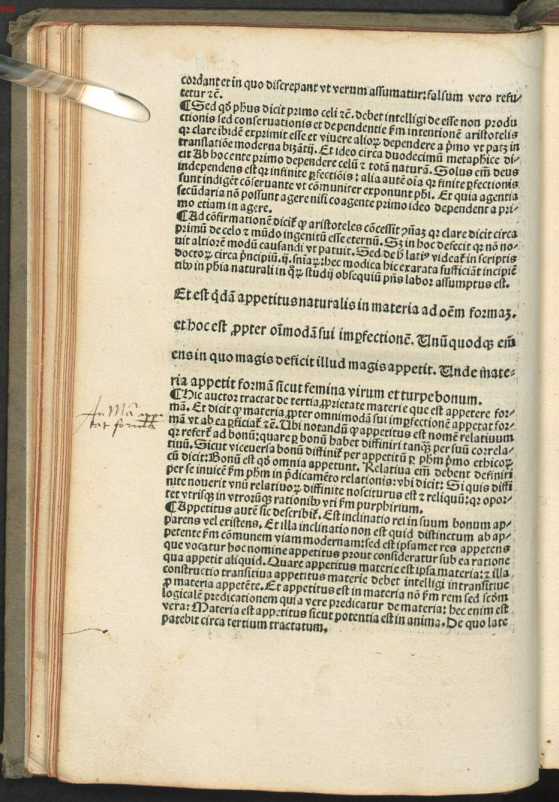 cordant et in quo discrepant vt verum assumatur: falsum vero refu⸗
tetur ⁊c̄.
¶ Sed qd̓ phus dicit primo celi ⁊c̄. debet intelligi de esse non produ
ctionis sed conseruationis et dependentie ẜm intentionē aristotelis
qꝛ clare ibidē exprimit esse et viuere alioꝝ dependere a p̄mo vt patꝫ in
translatiōe moderna bizātij. Et ideo circa duodecimū metaphice di⸗
cit Ab hoc ente primo dependere celū ⁊ totā naturā. Solus em̄ deus
independens est qꝛ infinite ꝑfectiōis: alia autē oīa qꝛ finite ꝑfectionis
sunt indigēt cōseruante vt cōmuniter exponunt phi. Et quia agentia
secūdaria nō possunt agere nisi coagente primo ideo dependent a pri⸗
mo etiam in agere.
¶ Ad cōfirmationē dicit̄ ꝙ aristoteles cōcessit ꝯñaꝫ qꝛ clare dicit circa
primū de celo ⁊ mūdo ingenitū esse eternū. Sꝫ in hoc defecit qꝛ nō no⸗
uit altiorē modū causandi vt patuit. Sed de h̓ lati⁹ videat̄ in scriptis
doctoꝝ circa p̄ncipiū .ij. sniaꝝ: hec modica hic exarata sufficiāt incipiē
tibꝰ in phia naturali in qͦꝝ studij obsequiū pn̄s labor assumptus est.
Et est q̄dā appetitus naturalis in materia ad oēm formaꝫ.
et hoc est ꝓpter oīmodā sui imꝑfectionē. Unūquodqꝫ em̄
ens in quo magis deficit illud magis appetit. Unde mate⸗
ria appetit formā sicut femina virum et turpe bonum.
¶ Hic auctor tractat de tertia ꝓprietate materie que est appetere for⸗
mā. Et dicit ꝙ materia ꝓpter omnimodā sui imꝑfectionē appetat for⸗
mā vt ab ea ꝑficiat̄ ⁊c̄. Ubi notandū ꝙ appetitus est nomē relatiuum
qꝛ refert̄ ad bonū: quare ꝑ bonū habet diffiniri tanqͣꝫ per suū correla⸗
tiuū. Sicut viceuersa bonū diffinit̄ per appetitū ꝑ phm p̄mo ethicoꝝ
cū dicit: Bonū est qd̓ omnia appetunt. Relatiua em̄ debent definiri
per se inuicē ẜm phm in p̄dicamēto relationis: vbi dicit: Si quis diffi
nite nouerit vnū relatiuoꝝ diffinite nosciturus est ⁊ reliquū: qꝛ opor⸗
tet vtrisqꝫ in vtrorūqꝫ rationibꝰ vti ẜm purphirium.
¶ Appetitus autē sic describit̄. Est inclinatio rei in suum bonum ap⸗
parens vel existens. Et illa inclinatio non est quid distinctum ab ap⸗
petente ẜm cōmunem viam modernam: sed est ipsamet res appetens
que vocatur hoc nomine appetitus prout consideratur sub ea ratione
qua appetit aliquid. Quare appetitus materie est ipsa materia: ⁊ illa
constructio transitiua appetitus materie debet intelligi intransitiue
ꝓ materia appetēte. Et appetitus est in materia nō ẜm rem sed scōm
logicalē predicationem quia vere predicatur de materia: hec enim est
vera: Materia est appetitus sicut potentia est in anima. De quo late
patebit circa tertium tractatum.